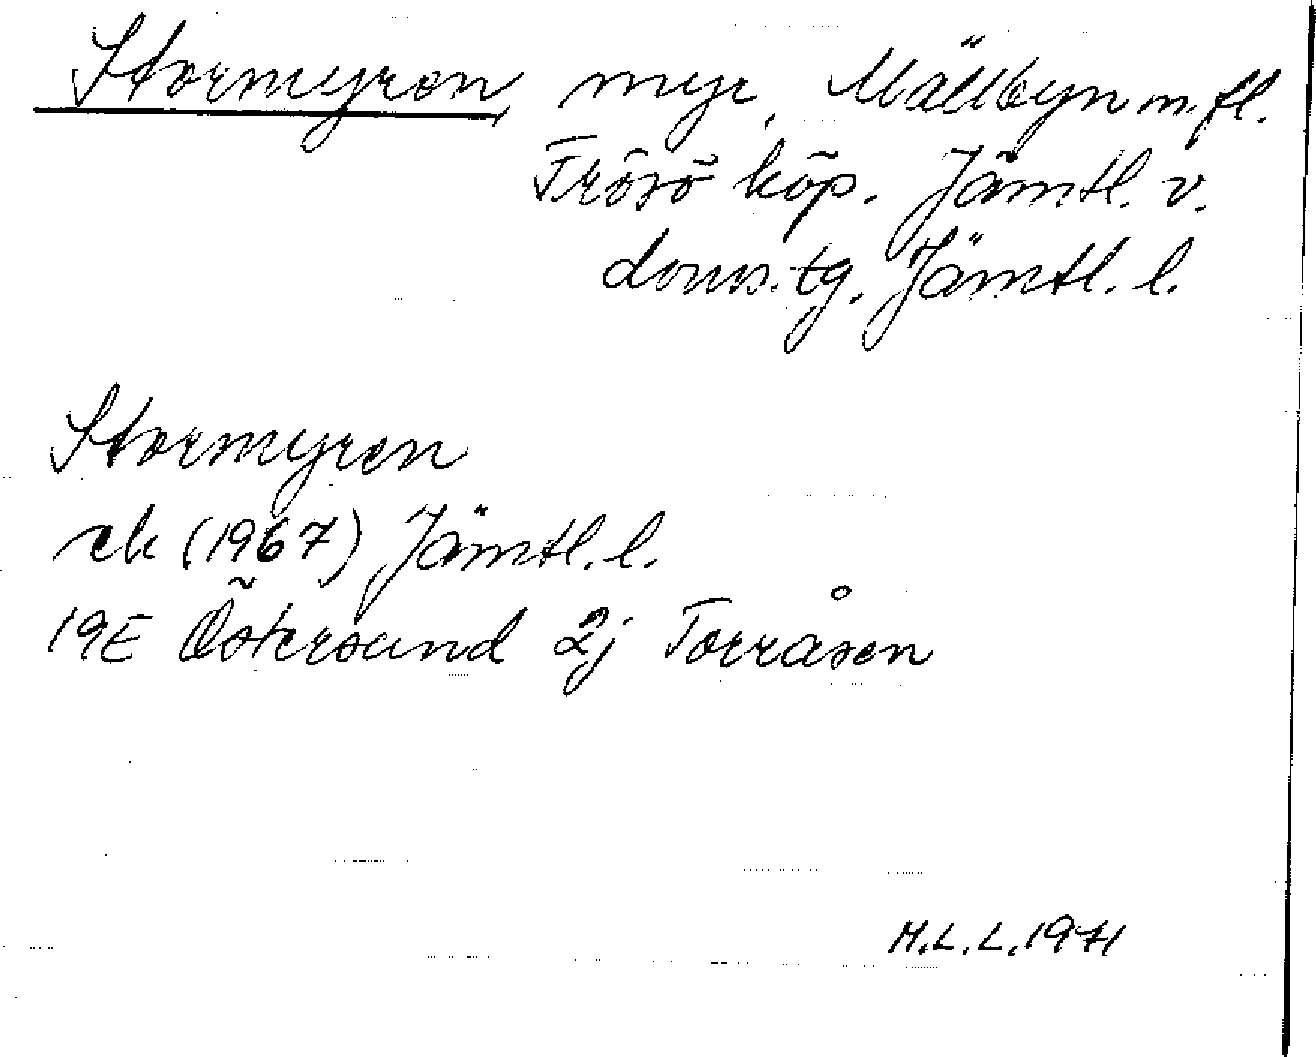 Stormyren, myr, Mällbyn m.fl.
Frösö köp. Jämtl. v.
doms.tg. Jämtl. l.
Stormyren
rek (1967) Jämtl. l.
19E Östersund 2j Torråsen
M.L.L. 1971